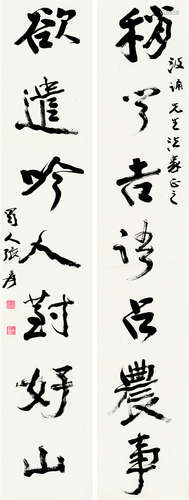 稍聞吉語占農事
先生法家正之
欲遣吟人對好山
蜀人張爰